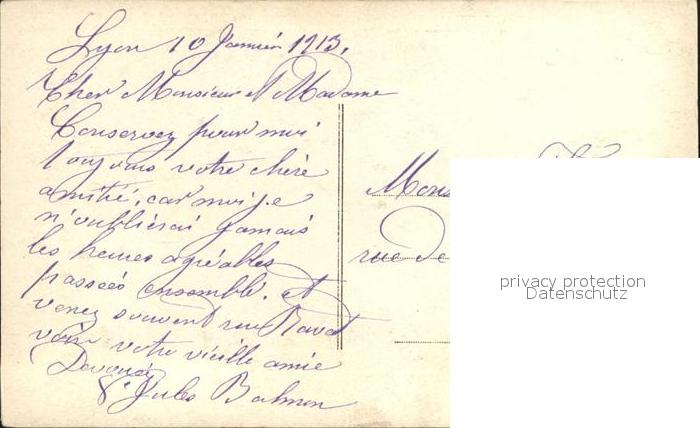 Lyon 10 Janvier 1913.
Cher Monsieur et Madame
Conservez pour moi
toujours votre chère
amitié, car moi je
n'oublierai jamais
les heures agréables
passées ensemble. et
venez souvent rue Ravat
voir votre vieille amie
Dévouée
Jules
rue de
privacy protection
Datenschutz